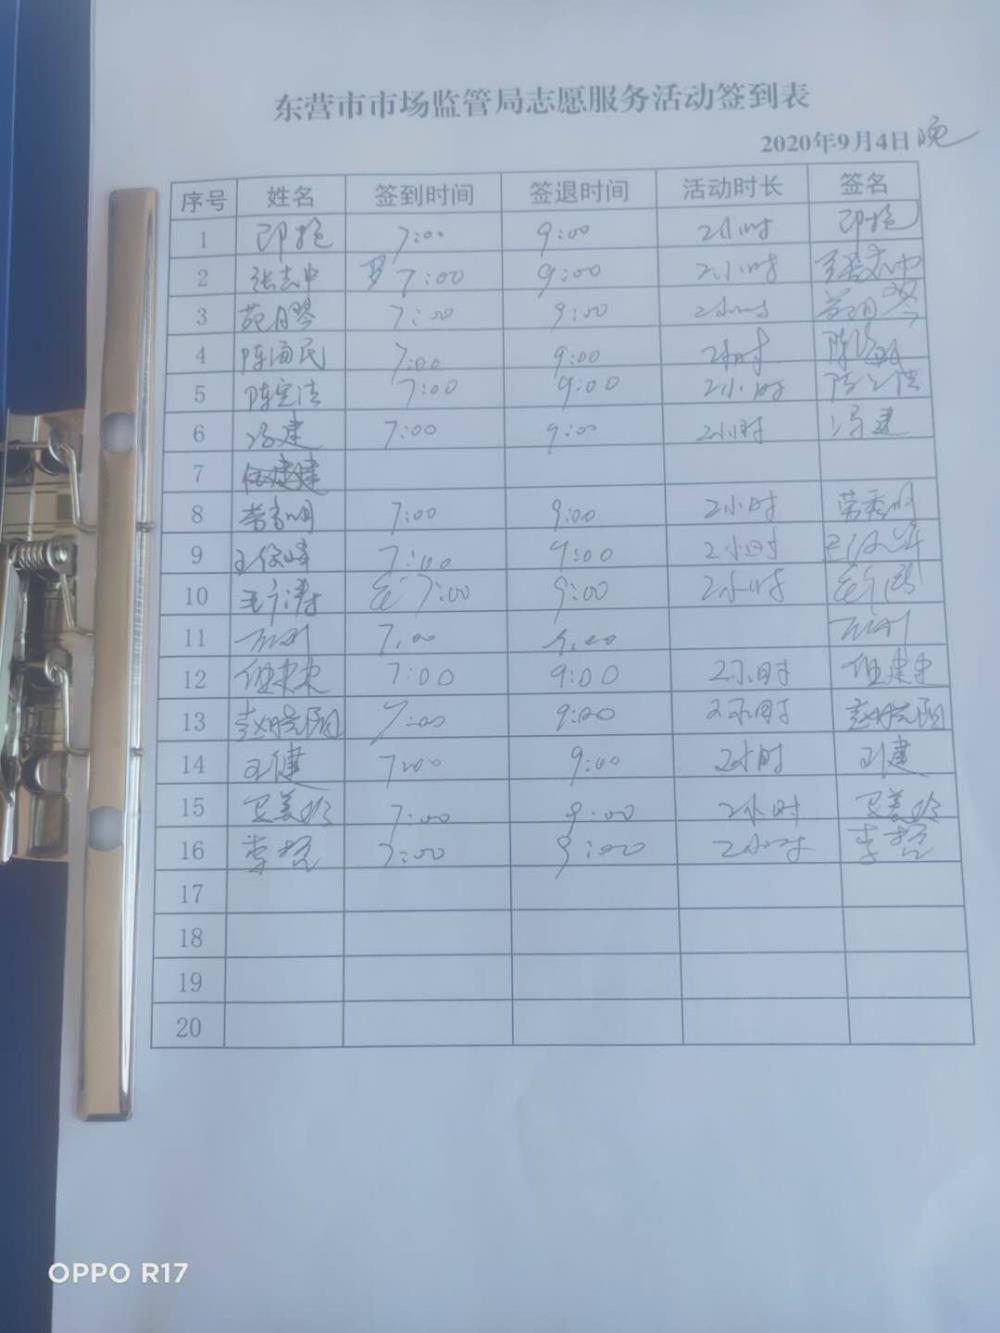 东营市市场监管局志愿服务活动签到表
2020年9月4日晚
序号 姓名 签到时间 签退时间 活动时长 签名
1 7:00 9:00 2小时
2 张志中 7:00 9:00 2小时 张志中
3 苑月琴 7:00 9:00 2小时
4 陈海民 7:00 9:00 2小时
5 陈宝洁 7:00 9:00 2小时
6 冯建 7:00 9:00 2小时 冯建
7
8 7:00 9:00 2小时
9 王俊峰 7:00 9:00 2小时
10 7:00 9:00 2小时
11 7:00 9:00
12 7:00 9:00 2小时
13 赵晓阳 7:00 9:00 2小时 赵晓阳
14 王健 7:00 9:00 2小时 王建
15 7:00 9:00 2小时
16 李超 7:00 9:00 2小时 李超
17
18
19
20
OPPO R17